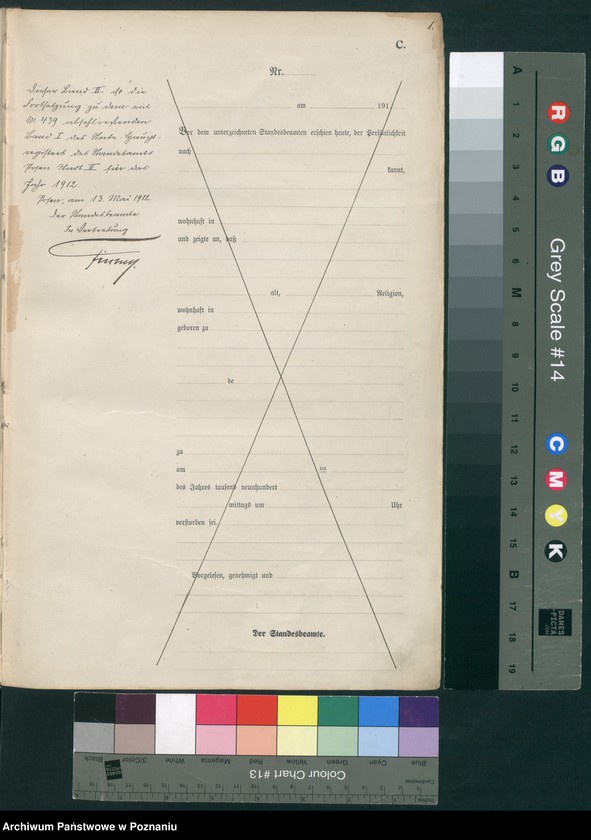 1.
C.
Nr.
Dieser Band II. ist die
Fortsetzung zu dem mit
Nr. 439 abschließenden
Band I des Sterbe-Haupt-
registers des Standesamts
Posen Stadt II für das
Jahr 1912.
Posen, am 13. Mai 1912.
Der Standesbeamte
In Vertretung
am 191
Vor dem unterzeichneten Standesbeamten erschien heute, der Persönlichkeit
nach
kannt,
wohnhaft in
und zeigte an, daß
alt, Religion,
wohnhaft in
geboren zu
de
zu
am ten
des Jahres tausend neunhundert
mittags um Uhr
verstorben sei.
Vorgelesen, genehmigt und
Der Standesbeamte.
A 1 2 3 4 5 6 M 8 9 10 11 12 13 14 15 B 17 18 19
R G B
Grey Scale #14
C M Y K
DANES
PICTA
.COM
Black 3/Color White Magenta Red Yellow Green Cyan Blue
Colour Chart #13
Archiwum Państwowe w Poznaniu